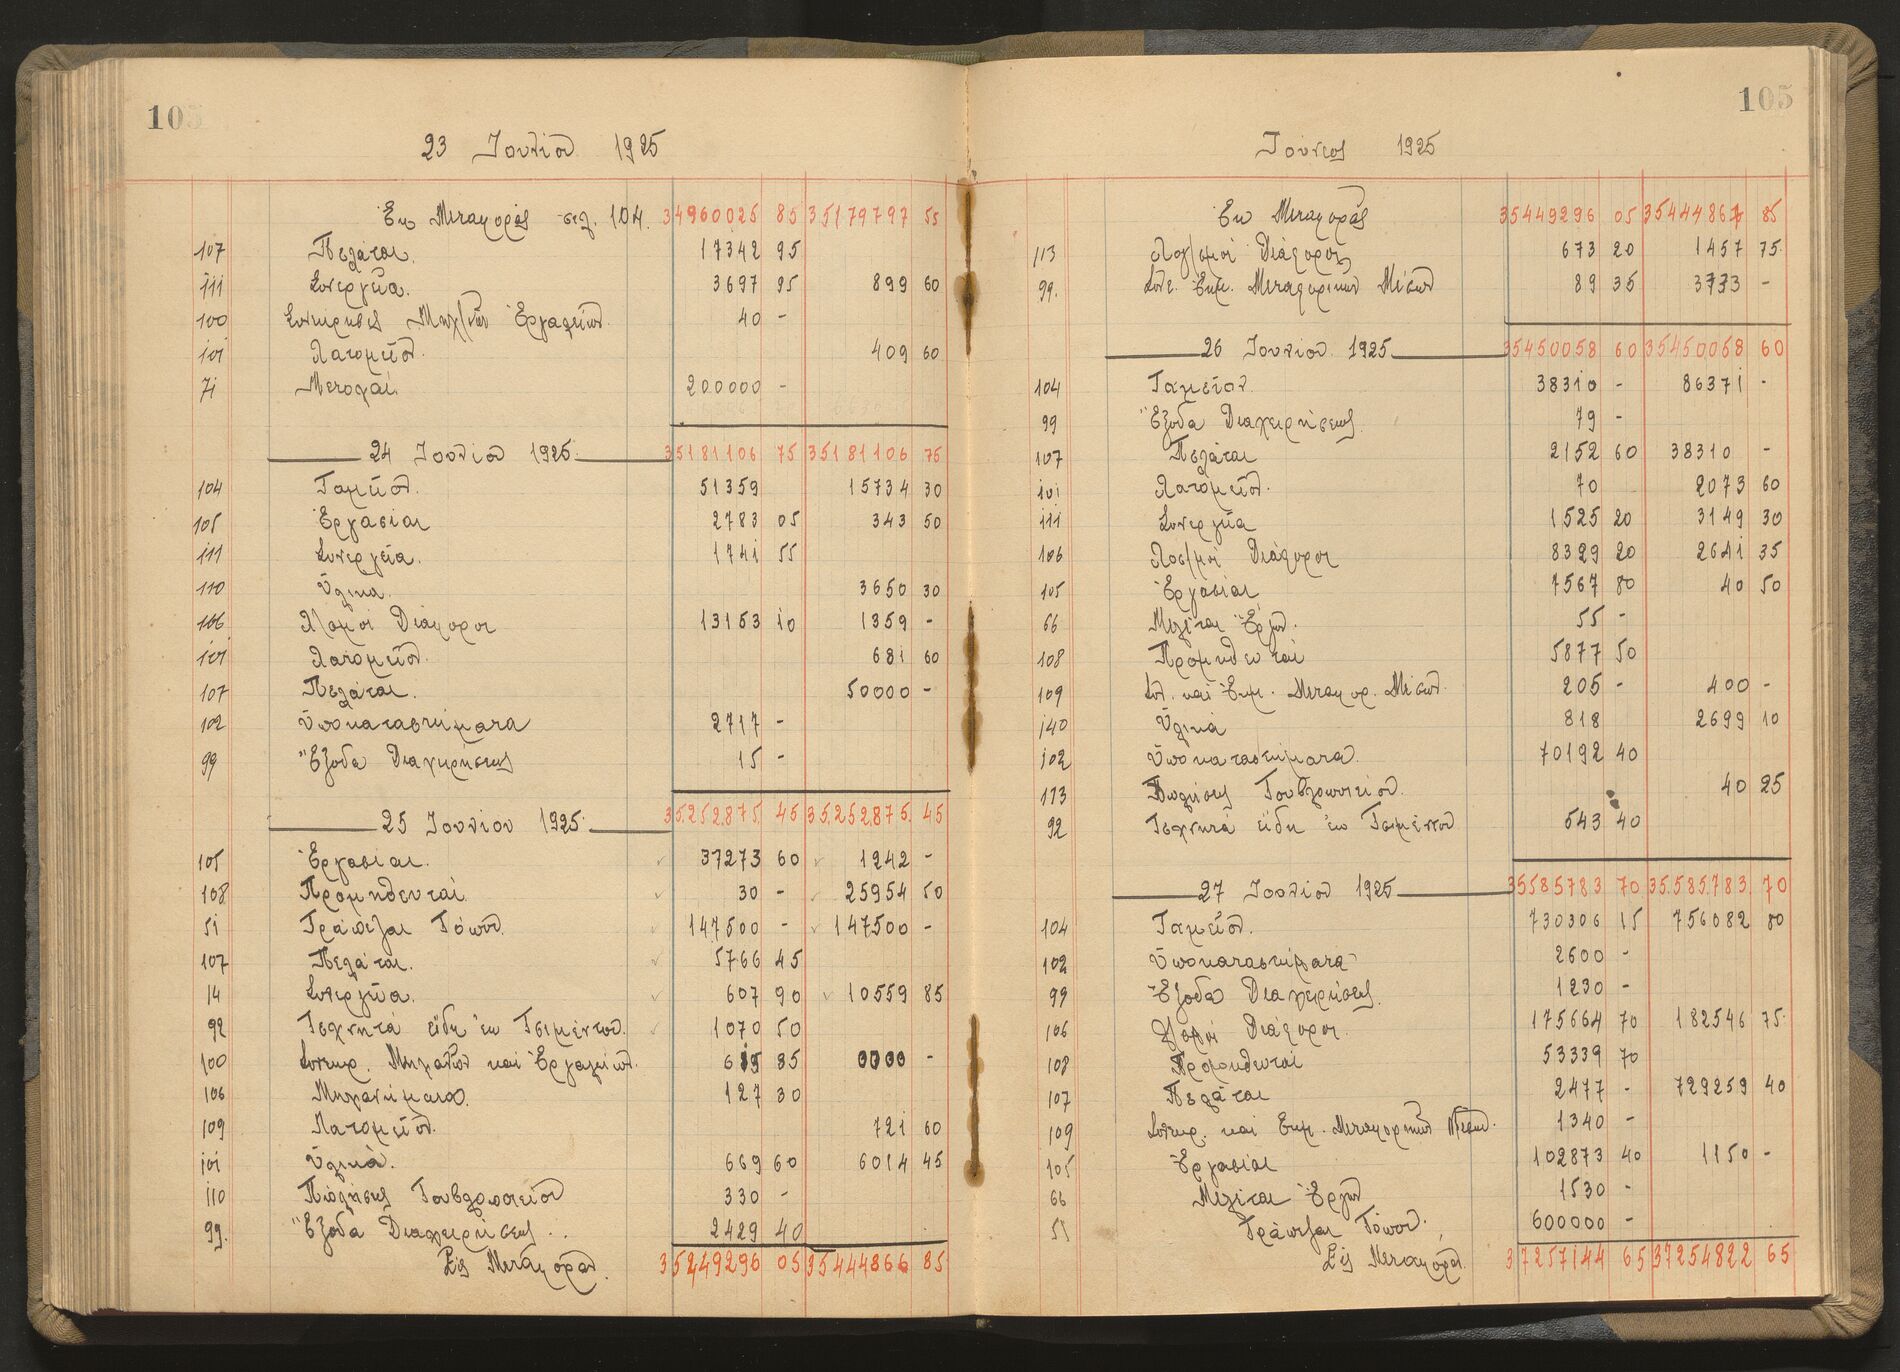 105
23 Ιουνίου 1925
Ἐκ Μεταφορᾶς σελ. 104. 34960026 85 35179797 55
107 Πελάται. 17342 95
111 Συνεργεῖα. 3697 95 899 60
100 Συντήρησις Μηχ/νῶν Ἐργαλείων. 40 -
101 Λατομεῖον. 409 60
71 Μετοχαί. 200000 -
24 Ιουνίου 1925. 35181106 75 35181106 75
104 Ταμεῖον. 51359 15734 30
105 Ἐργασίαι 2783 05 343 50
111 Συνεργεῖα. 1741 55
110 Ὑλικα. 3650 30
106 Λ/σμοί Διάφοροι 13153 10 1359 -
101 Λατομεῖον. 681 60
107 Πελάται. 50000 -
102 Ὑποκαταστήματα 2717 -
99 Ἔξοδα Διαχειρήσεως 15 -
25 Ιουνίου 1925. 35.252.875. 45 35.252.875. 45
105 Ἐργασίαι. 37273 60 1242 -
108 Προμηθευταί 30 - 25954 50
51 Τράπεζαι Τόπου. 147500 - 147500 -
107 Πελάται. 5766 45
14 Συνεργεῖα. 607 90 10559 85
92 Τεχνητά εἴδη ἐκ Τσιμέντου. 1070 50
100 Συντηρ. Μηχανῶν καί Ἐργαλείων. 85 -
106 Μηχανήματα. 127 30
109 Λατομεῖον. 721 60
101 Ὑλικά. 669 60 6014 45
110 Πωλήσεις Τουβλοποιείου 330 -
99. Ἔξοδα Διαχειρήσεως.. 2429 40
Εἰς Μεταφοράν. 35449296 05 35444866 85
105
Ἰούνιος 1925
Ἐκ Μεταφορᾶς 35449296 05 35444867 85
113 Λογ/σμοί Διάφοροι 673 20 1457 75
99. Συν. Ἐκμ. Μεταφορικῶν Μέσων 89 35 3733 -
26 Ιουνίου 1925 35450058 60 35450058 60
104 Ταμεῖον. 38310 - 86371 -
99 Ἔξοδα Διαχειρήσεως. 79 -
107 Πελάται 2152 60 38310 -
101 Λατομεῖον. 70 2073 60
111 Συνεργεῖα 1525 20 3149 30
106 Λοσ/μοί Διάφοροι 8329 20 2641 35
105 Ἐργασίαι 7567 80 40 50
66 Μελέται Ἔργων. 55 -
108 Προμηθευταί 5877 50
109 Συν. καί Ἐκμ. Μεταφορ. Μέσων. 205 - 400 -
140 Ὑλικά 818 2699 10
102 Ὑποκαταστήματα. 70192 40
113 Πωλήσεις Τουβλοποιείου. 40 25
92 Τεχνητά εἴδη ἐκ Τσιμέντου 543 40
27 Ιουνίου 1925 35585783 70 35.585.783. 70
104 Ταμεῖον. 730306 15 756082 80
102 Ὑποκαταστήματα 2600 -
99 Ἔξοδα Διαχειρήσεως. 1230 -
106 Διάφοροι. 175664 70 182546 75
108 Προμηθευταί 53339 70
107 Πελάται 2477 - 729259 40
109 Συντηρ. καί Ἐκμ. Μεταφορικῶν Μέσων. 1340 -
105 Ἐργασίαι 102873 40 1150 -
66 Μελέται Ἔργων 1530 -
51 Τράπεζαι Τόπου. 600000 -
Εἰς Μεταφοράν. 37257144 65 37254822 65